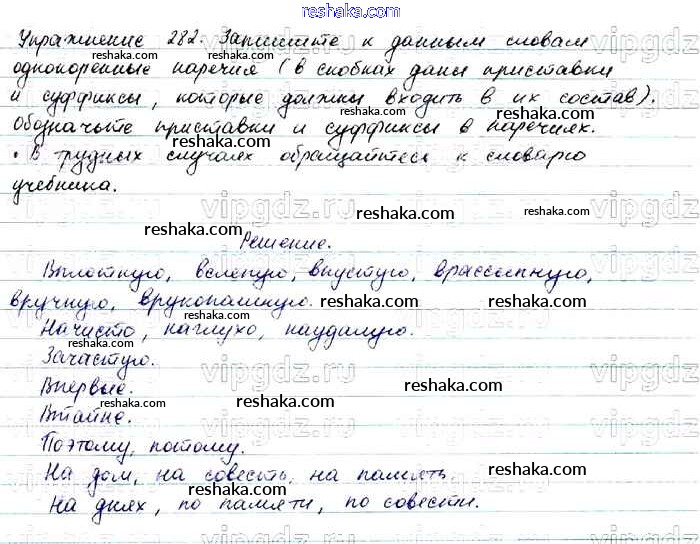 reshaka.com
Упражнение 282. Запишите к данным словам
reshaka.com
однокоренные наречия (в скобках даны приставки
reshaka.com
и суффиксы, которые должны входить в их состав).
reshaka.com
Обозначьте приставки и суффиксы в наречиях.
reshaka.com
• В трудных случаях обращайтесь к словарю
учебника.
vipgdz.ru reshaka.com vipgdz.ru
reshaka.com reshaka.com
Решение.
Вплотную, вслепую, впустую, врассыпную,
вручную, врукопашную. reshaka.com reshaka.com
Начисто, наглухо, наудалую.
reshaka.com
Зачастую.
vipgdz.ru vipgdz.ru
Впервые. reshaka.com
reshaka.com reshaka.com
Втайне.
reshaka.com
Поэтому, потому.
На дом, на совесть, на память. reshaka.com
reshaka.com
На днях, по памяти, по совести.
vipgdz.ru vipgdz.ru